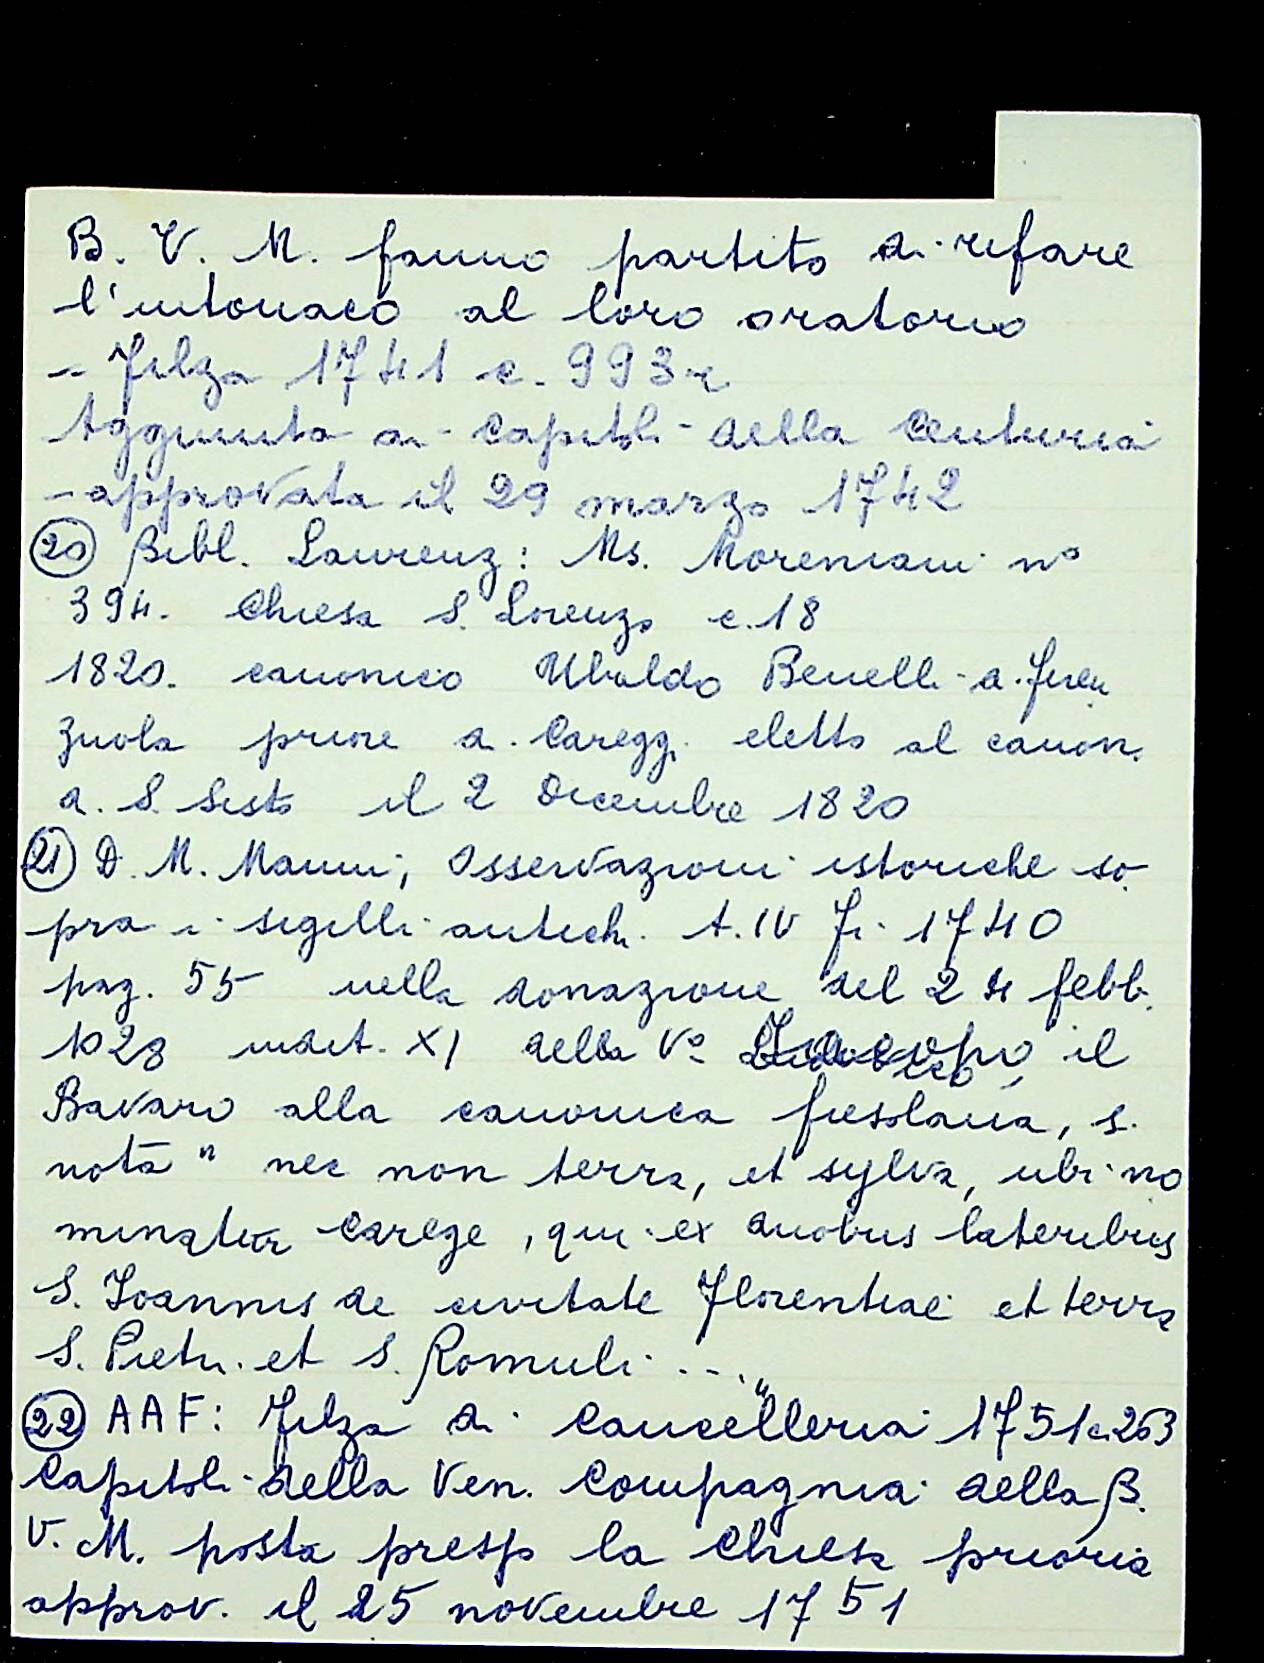 B. V. M. fanno partito di rifare
l'intonaco al loro oratorio
- Filza 1741 c. 993r
Aggiunta ai Capitoli della Centuria
- approvata il 29 marzo 1742
20 Bibl. Laurenz: Ms. Moreniani nº
394. Chiesa S. Lorenzo c. 18
1820. canonico Ubaldo Benelli di Firen
zuola priore di Careggi eletto al canon.
di S. Sisto il 2 Dicembre 1820
21 D. M. Manni, Osservazioni istoriche so
pra i sigilli antichi t. IV Fi. 1740
pag. 55 nella donazione del 24 febb.
1028 indit. XI della Vº Jacopo il
Bavaro alla canonica fiesolana, si
nota " nec non terra, et sylva, ubi no
minatur Carege, qui ex duobus lateribus
S. Ioannis de civitate Florentiae et terra
S. Pietri et S. Romuli ... "
22 AAF: Filza di Cancelleria 1751 c. 263
Capitoli della Ven. Compagnia della B.
V. M. posta presso la Chiesa prioria
approv. il 25 novembre 1751